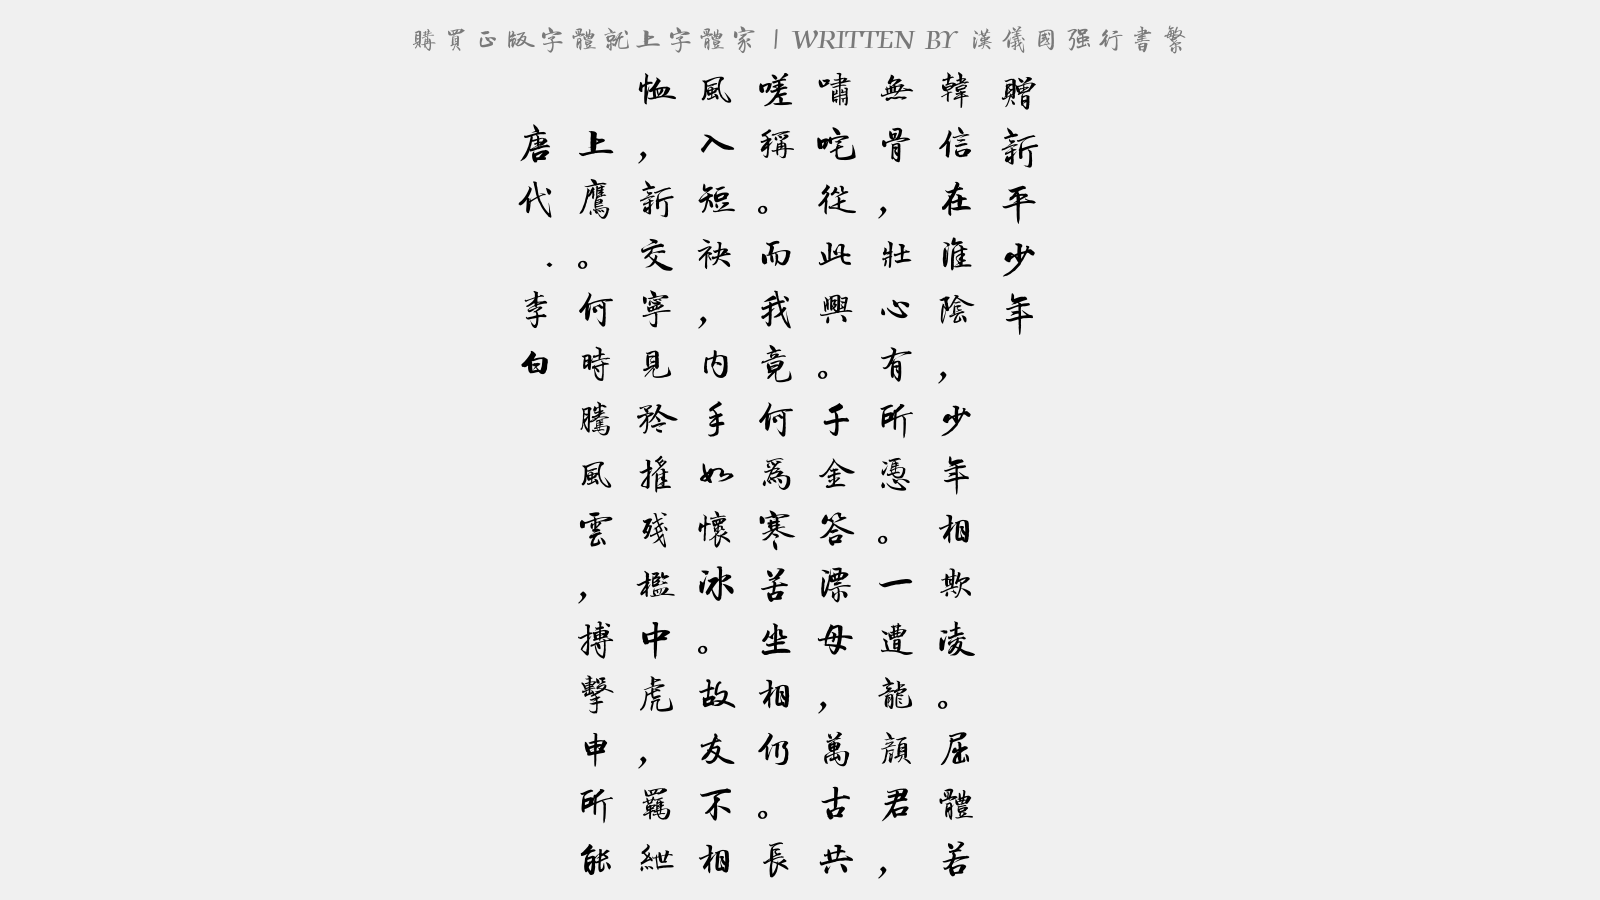 購買正版字體就上字體家 | WRITTEN BY 漢儀國强行書繁
贈新平少年
韓信在淮陰，少年相欺凌。屈體若
無骨，壯心有所憑。一遭龍顔君，
嘯咤從此興。千金答漂母，萬古共
嗟稱。而我竟何爲寒苦坐相仍。長
風入短袂，内手如懷冰。故友不相
恤，新交寧見矜摧殘檻中虎，羈紲
上鷹。何時騰風雲，搏擊申所能
唐代.李白